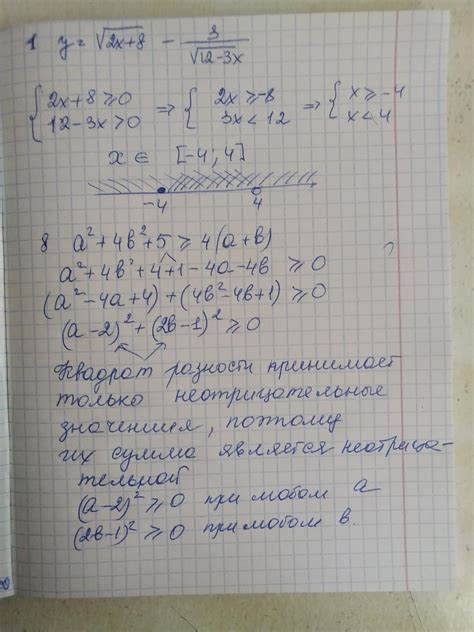 1 y = √(2x+8) - 3/√(12-3x)
{2x+8 ≥ 0 ⇒ {2x ≥ -8 ⇒ {x ≥ -4
12-3x > 0 3x < 12 x < 4
x ∈ [-4; 4]
-4 4
8 a² + 4b² + 5 ≥ 4(a+b)
a² + 4b² + 4 + 1 - 4a - 4b ≥ 0
(a² - 4a + 4) + (4b² - 4b + 1) ≥ 0
(a-2)² + (2b-1)² ≥ 0
Квадрат разности принимает
только неотрицательные
значения, поэтому
их сумма является неотрица-
тельной
(a-2)² ≥ 0 при любом a
(2b-1)² ≥ 0 при любом b.